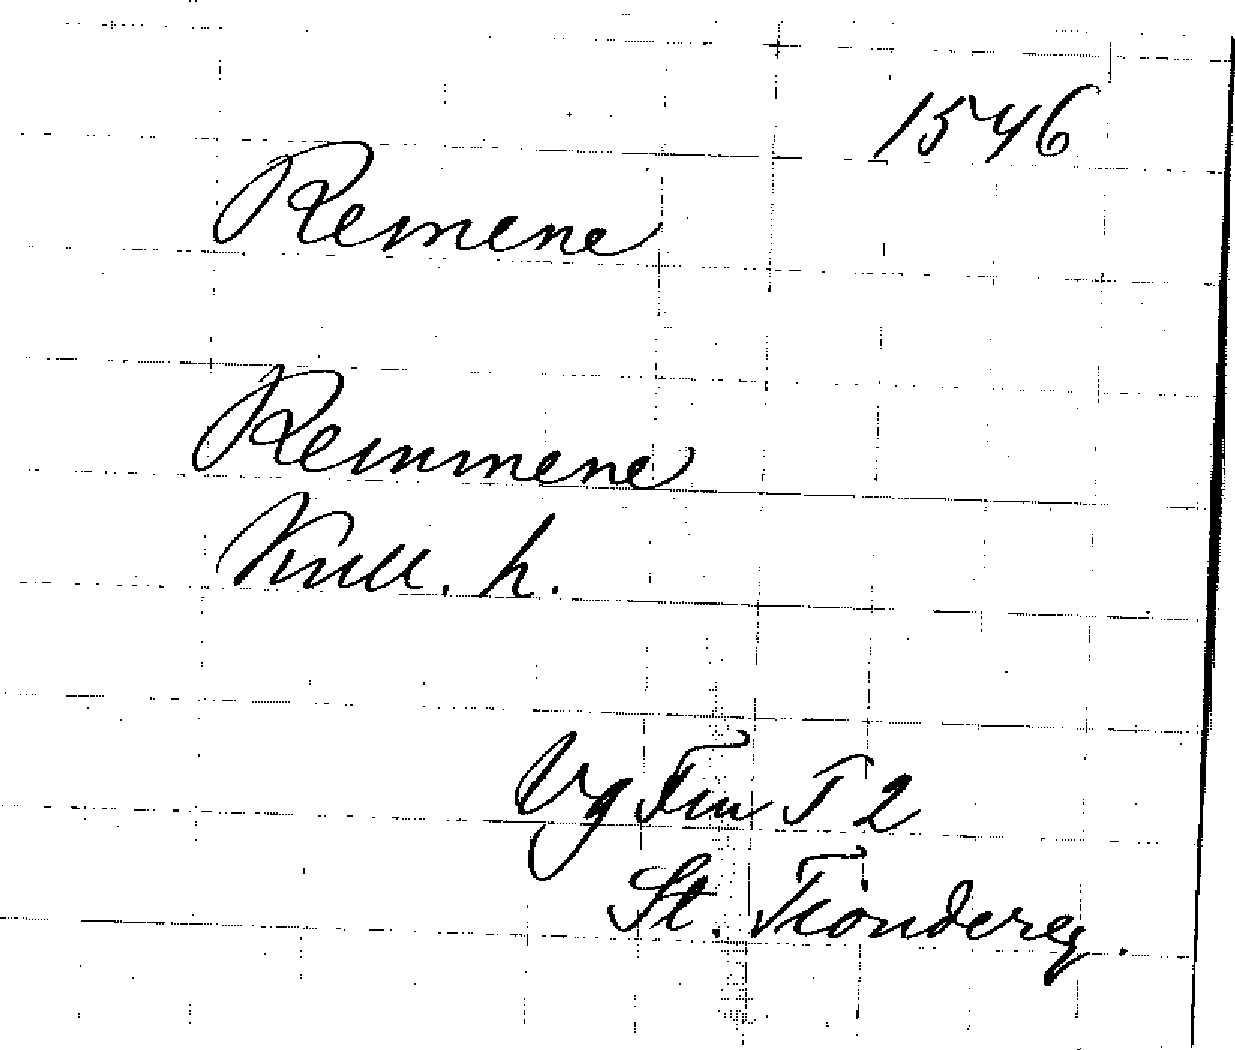 1546
Remene
Remmene
Kull. h.
Vg Fru T 2
St. Tiondereg.